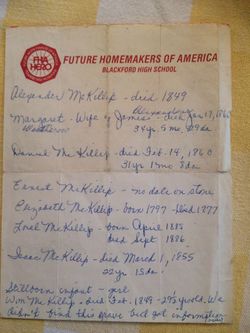 FHA
HERO
FUTURE HOMEMAKERS OF AMERICA
BLACKFORD HIGH SCHOOL
Alexander McKillip - died 1849
Alexander
Margaret - Wife of James - died Jan 17, 1865
34yr 5mo
Daniel McKillip - died Feb. 14, 1860
31yr 8da
Ernest McKillip - no date on stone
Elizabeth McKillip - born 1797 - died 1877
McKillip - born April 1885
died Sept 1886.
Isaac McKillip - died March 1, 1855
22yr 15da.
Stillborn infant - girl
Wm McKillip - died Oct. 1849 - 29yrs old. We
didn't find this grave but got information